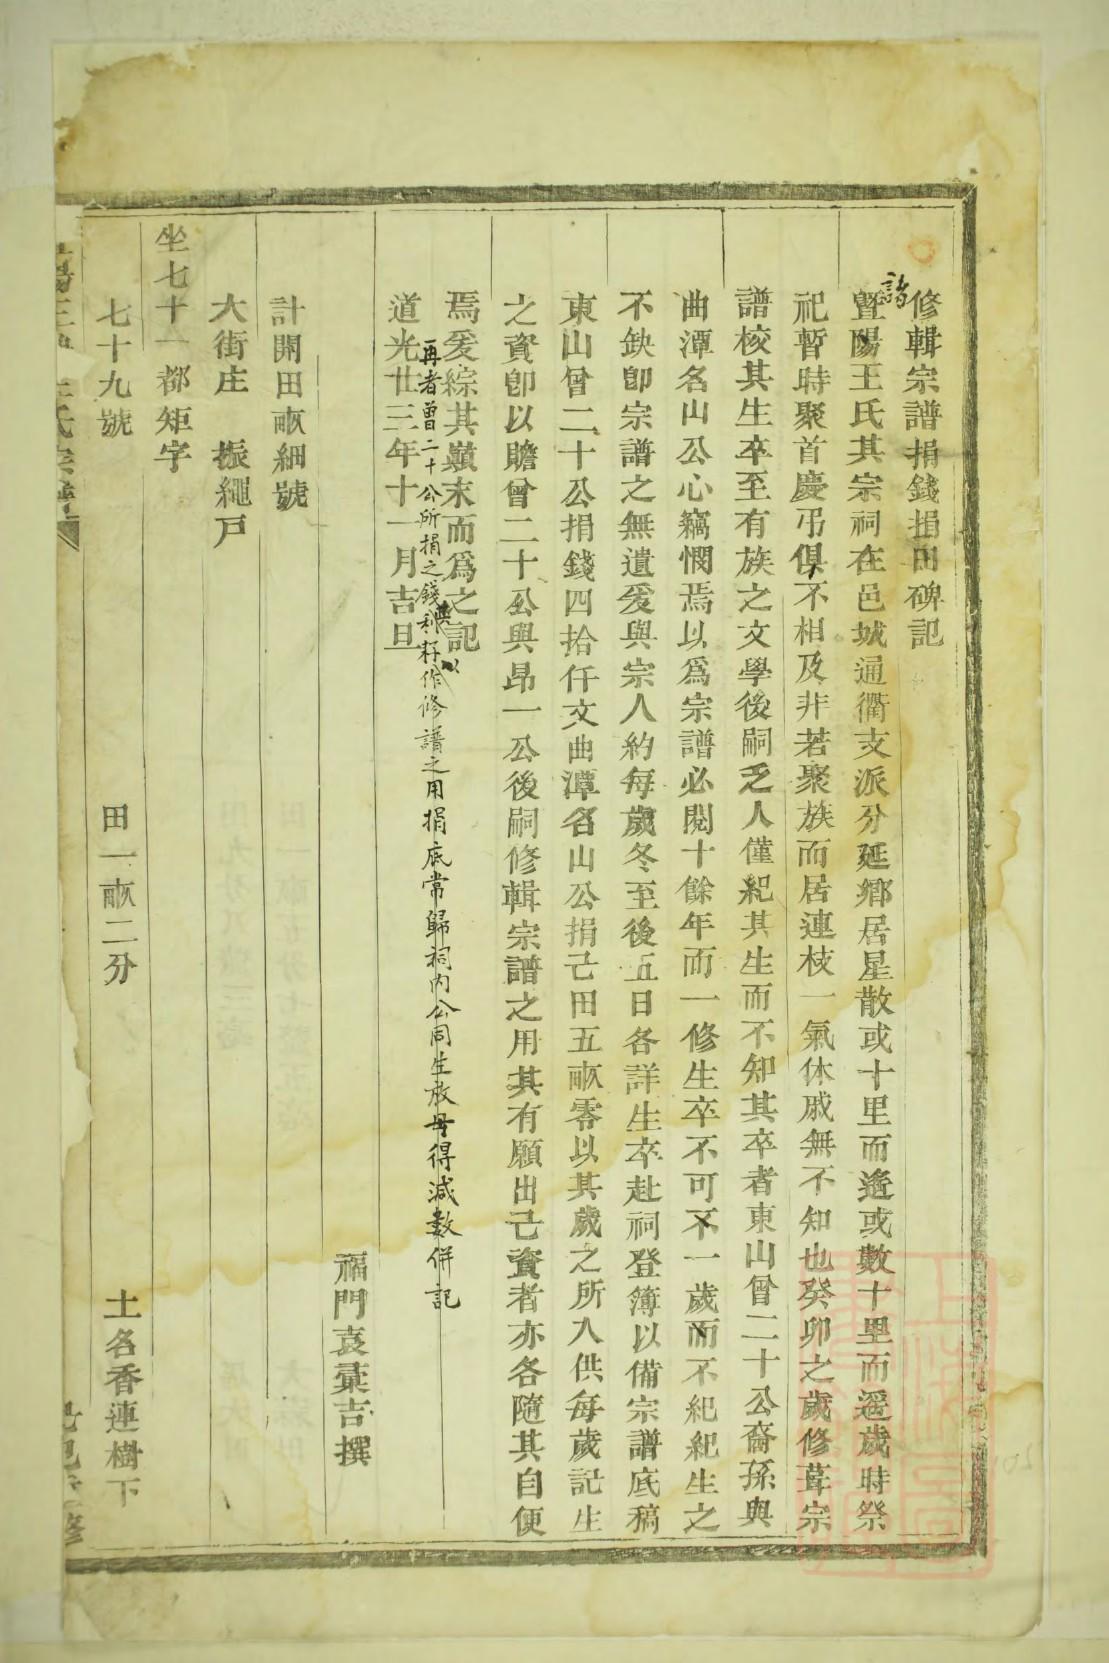 修輯宗譜捐錢捐田碑記
暨陽王氏其宗祠在邑城通衢支派分延鄉居星散或十里而遙或數十里而遥歲時祭
祀暫時聚首慶弔俱不相及非若聚族而居連枝一氣休戚無不知也癸卯之歲修葺宗
譜校其生卒至有族之文學後嗣乏人僅紀其生而不知其卒者東山曾二十公裔孫與
曲潭名山公心竊憫焉以爲宗譜必閱十餘年而一修生卒不可不一歲而不紀紀生之
不缺卽宗譜之無遺爰與宗人約每歲冬至後五日各詳生卒赴祠登簿以備宗譜底稿
東山曾二十公捐錢四拾仟文曲潭名山公捐己田五畝零以其歲之所入供每歲記生
之資卽以贍曾二十公與昂一公後嗣修輯宗譜之用其有願出己資者亦各隨其自便
焉爰綜其巔末而爲之記
再者曾二十公所捐之錢利并作修譜之用捐底常歸祠內公同生放毋得減數併記
道光廿三年十一月吉旦
福門袁彙吉撰
計開田畝細號
大街庄 振繩戶
坐七十一都矩字
七十九號 田一畝二分 土名香連樹下